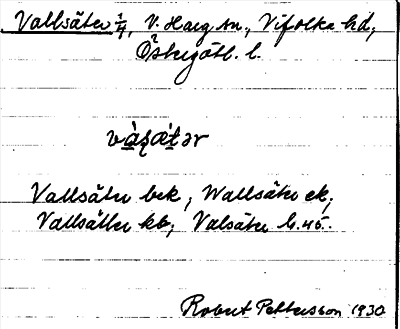 Vallsäter 1/4, V. Harg sn., Vifolka hd,
Östergötl. l.
vàşæ̀tər
Vallsäter bek, Wallsäter ek,
Vallsätter kb, Valsäter h. 45.
Robert Pettersson 1930